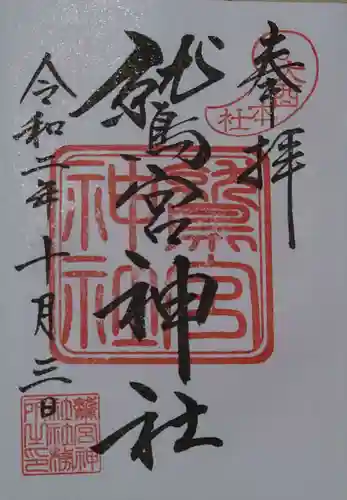 奉拝
鷲宮神社
令和二年十月三日
鷲宮神社
鷲宮神社社務所之印